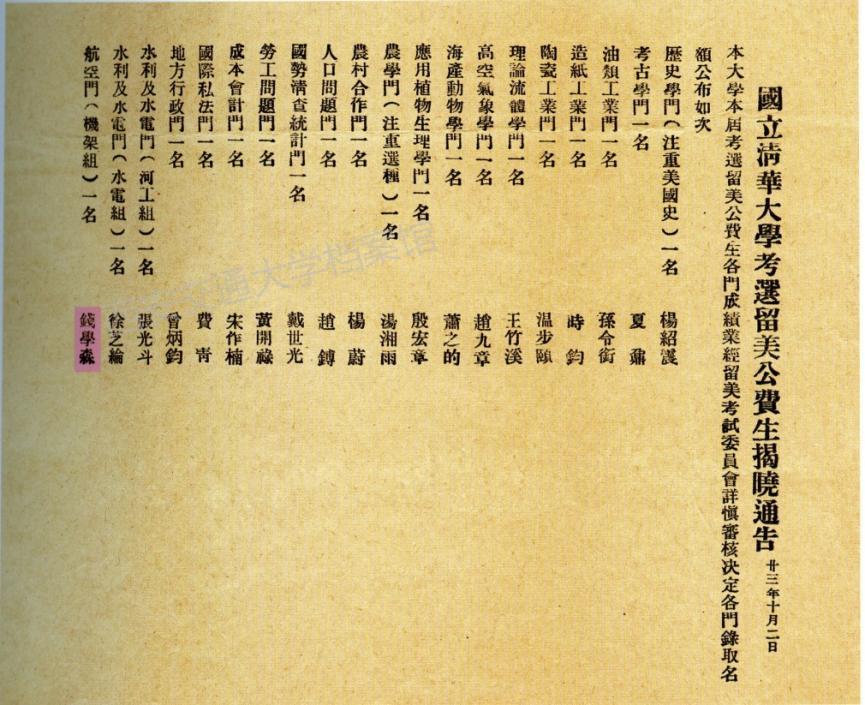 國立清華大學考選留美公費生揭曉通告 廿三年十月二日
本大學本屆考選留美公費生各門成績業經留美考試委員會詳慎審核決定各門錄取名
額公布如次
歷史學門(注重美國史)一名 楊紹震
考古學門一名 夏鼐
油類工業門一名 孫令銜
造紙工業門一名 時鈞
陶瓷工業門一名 温步頤
理論流體學門一名 王竹溪
高空氣象學門一名 趙九章
海產動物學門一名 蕭之的
應用植物生理學門一名 殷宏章
農學門(注重選種)一名 湯湘雨
農村合作門一名 楊蔚
人口問題門一名 趙鏄
國勢清查統計門一名 戴世光
勞工問題門一名 黃開祿
成本會計門一名 宋作楠
國際私法門一名 費青
地方行政門一名 曾炳鈞
水利及水電門(河工組)一名 張光斗
水利及水電門(水電組)一名 徐芝綸
航空門(機架組)一名 錢學森
交通大学档案馆